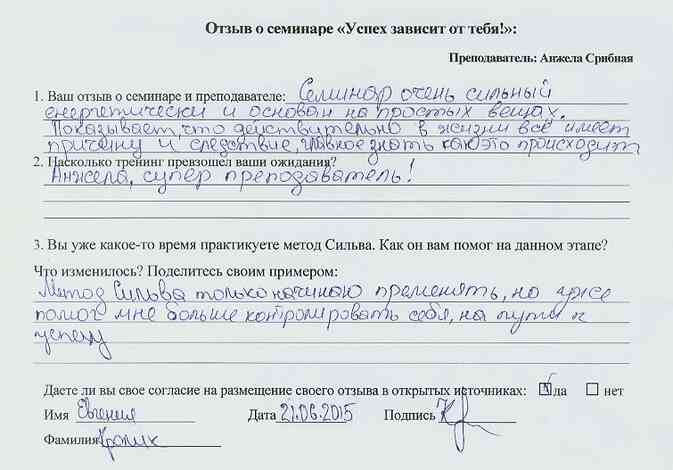 Отзыв о семинаре «Успех зависит от тебя!»:
Преподаватель: Анжела Срибная
1. Ваш отзыв о семинаре и преподавателе: Семинар очень сильный
енергетически и основан на простых вещах.
Показывает, что действительно в жизни всё имеет
причину и следствие, главное знать как это происходит
2. Насколько тренинг превзошел ваши ожидания?
Анжела, супер преподаватель!
3. Вы уже какое-то время практикуете метод Сильва. Как он вам помог на данном этапе?
Что изменилось? Поделитесь своим примером:
Метод Сильва только начинаю применять, но уже
помог мне больше контролировать себя, на пути к
успеху
Даете ли вы свое согласие на размещение своего отзыва в открытых источниках: да нет
Имя Евгения Дата 21.06.2015 Подпись
Фамилия